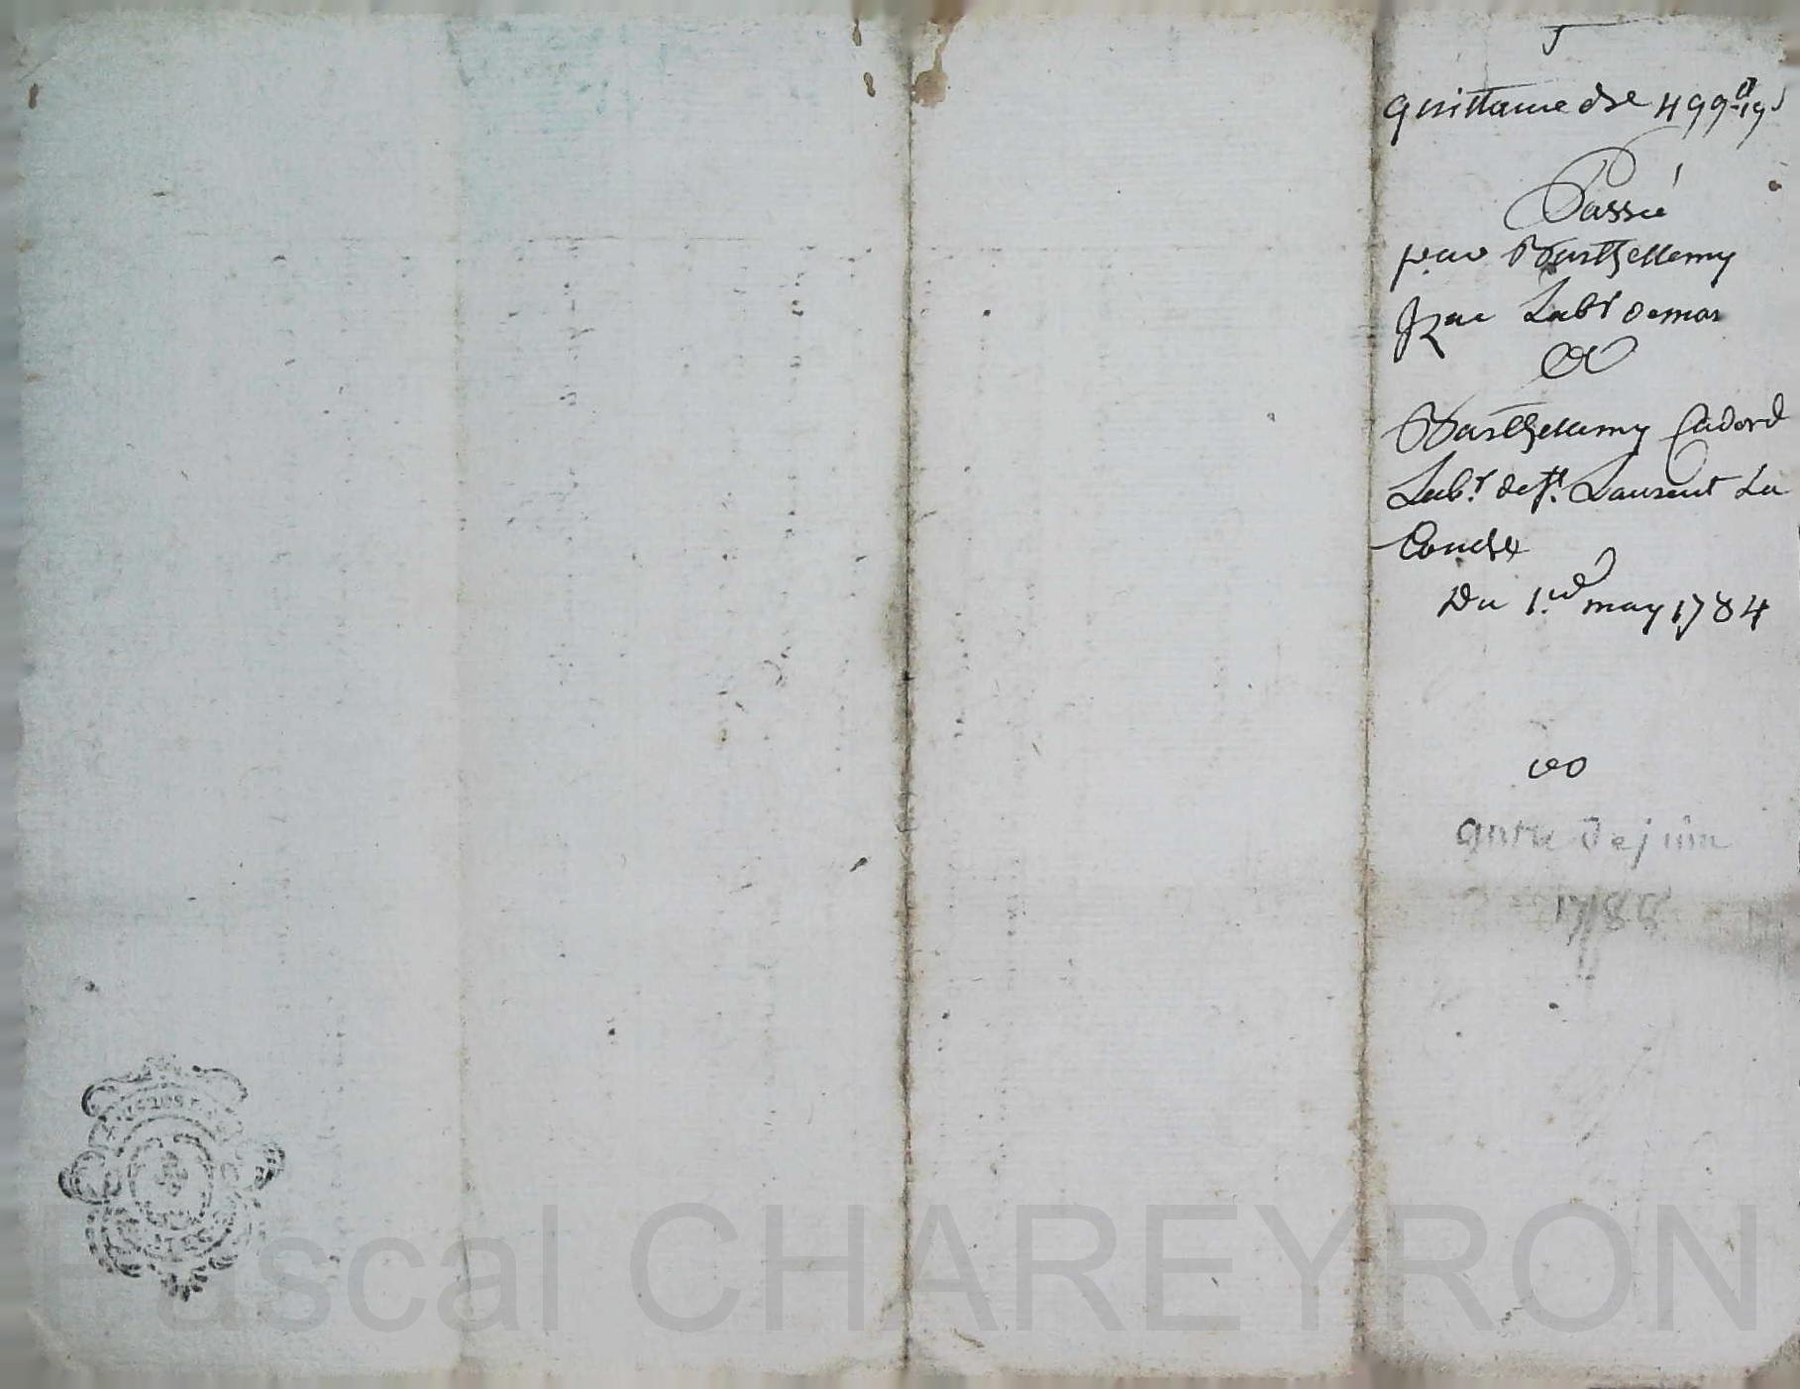 J
quittance de 499ᵗᵗ 19ˢ
Passée
par Barthellemy
Izac Labʳ demas
A
Barthellemy Cadord
Labʳ de Sᵗ Laurent La
Conche
Du 1.ᵉʳ may 1784
quitte de juin
1788
Pascal CHAREYRON